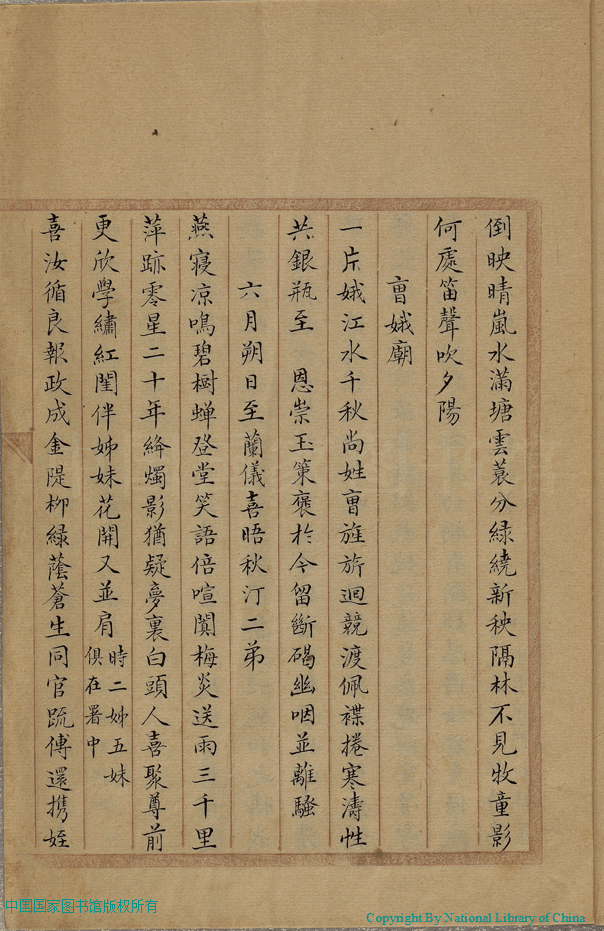 倒映晴嵐水滿塘雲蓑分緑繞新秧隔林不見牧童影
何處笛聲吹夕陽
曹娥廟
一片娥江水千秋尚姓曹旌旂迴競渡佩襍捲寒濤性
共銀瓶至　恩崇玉策褒於今留斷碣幽咽並離騷
六月朔日至蘭儀喜晤秋汀二弟
燕寢凉鳴碧樹蟬登堂笑語倍喧闐梅炎送雨三千里
萍跡零星二十年絳燭影猶疑夢裏白頭人喜聚尊前
更欣學繡紅閨伴姊妹花開又並肩時二姊五妹
俱在署中
喜汝循良報政成金隄柳緑蔭蒼生同官䟽傅還携姪
中国国家图书馆版权所有
Copyright By National Library of China